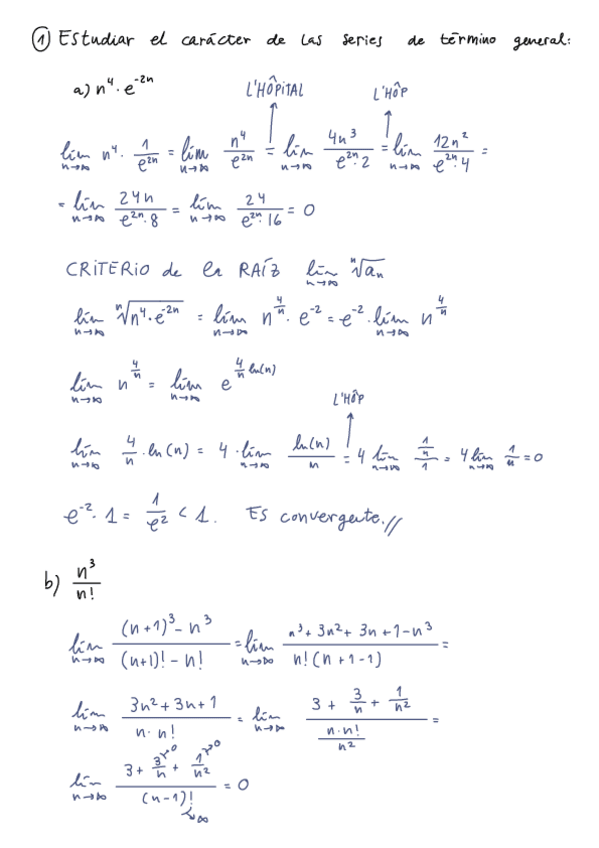 ① Estudiar el carácter de las series de término general:
a) n⁴ · e⁻²ⁿ
L'HÔPITAL L'HÔP
lím n→∞ n⁴ · 1/e²ⁿ = lím n→∞ n⁴/e²ⁿ = lím n→∞ 4n³/(e²ⁿ · 2) = lím n→∞ 12n²/(e²ⁿ · 4) =
= lím n→∞ 24n/(e²ⁿ · 8) = lím n→∞ 24/(e²ⁿ · 16) = 0
CRITERIO de la RAÍZ lím n→∞ ⁿ√aₙ
lím n→∞ ⁿ√(n⁴ · e⁻²ⁿ) = lím n→∞ n^(4/n) · e⁻² = e⁻² · lím n→∞ n^(4/n)
lím n→∞ n^(4/n) = lím n→∞ e^(4/n ln(n))
L'HÔP
lím n→∞ 4/n · ln(n) = 4 · lím n→∞ ln(n)/n = 4 lím n→∞ (1/n)/1 = 4 lím n→∞ 1/n = 0
e⁻² · 1 = 1/e² < 1. Es convergente.//
b) n³/n!
lím n→∞ ((n+1)³ - n³)/((n+1)! - n!) = lím n→∞ (n³ + 3n² + 3n + 1 - n³)/(n! (n+1-1)) =
lím n→∞ (3n² + 3n + 1)/(n · n!) = lím n→∞ (3 + 3/n + 1/n²)/((n · n!)/n²) =
lím n→∞ (3 + 3/n→0 + 1/n²→0)/((n-1)!→∞) = 0